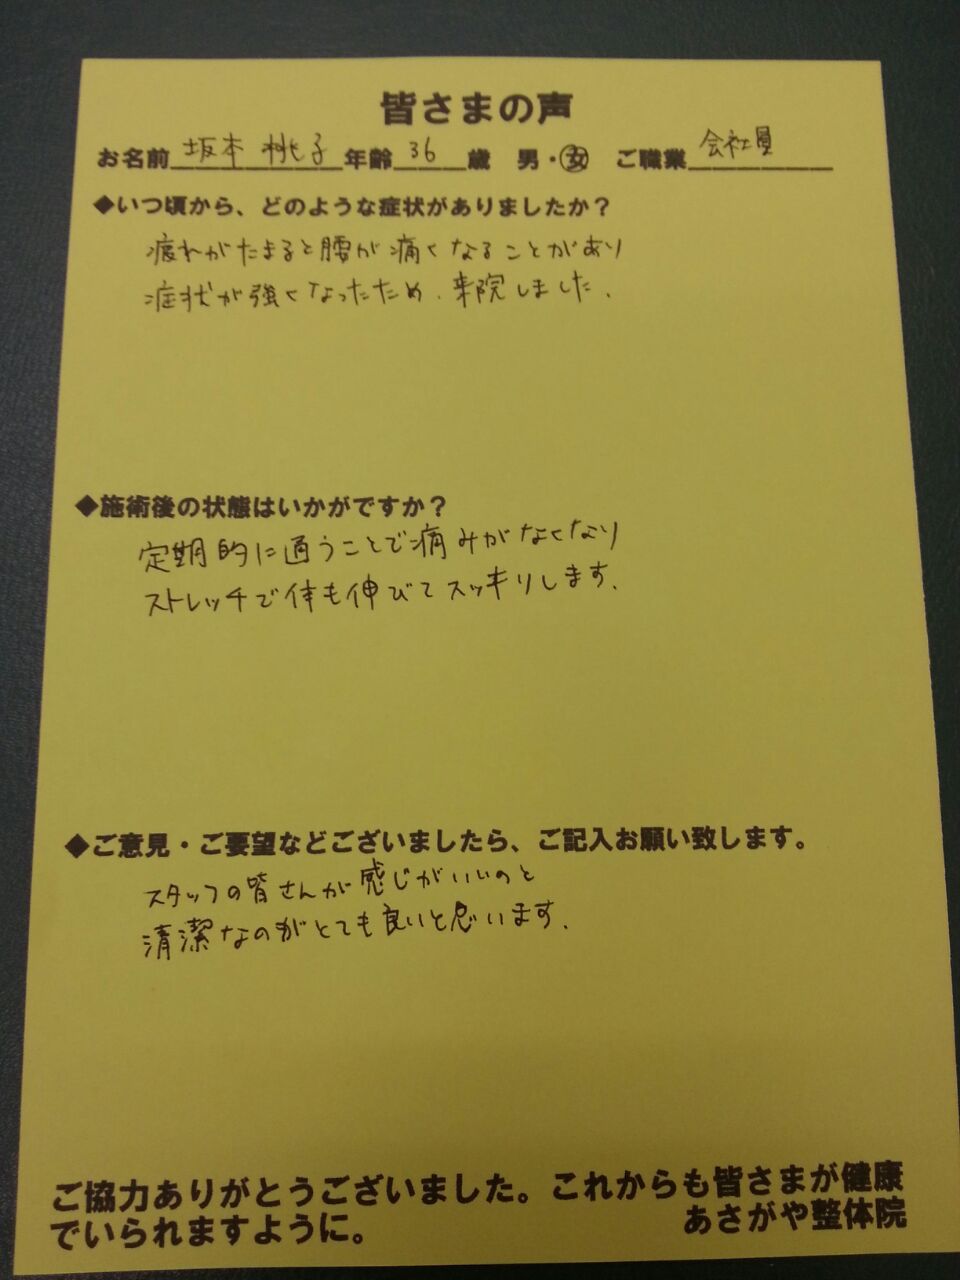 皆さまの声
お名前 坂本 桃子 年齢 36 歳 男・女 ご職業 会社員
◆いつ頃から、どのような症状がありましたか?
疲れがたまると腰が痛くなることがあり
症状が強くなったため、来院しました.
◆施術後の状態はいかがですか?
定期的に通うことで痛みがなくなり
ストレッチで体も伸びてスッキリします.
◆ご意見・ご要望などございましたら、ご記入お願い致します。
スタッフの皆さんが感じがいいのと
清潔なのがとても良いと思います.
ご協力ありがとうございました。これからも皆さまが健康
でいられますように。 あさがや整体院